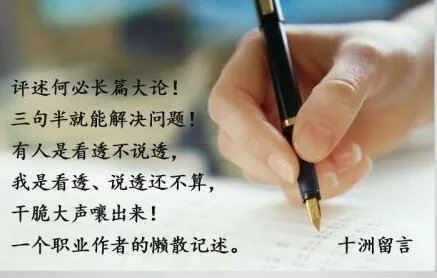 评述何必长篇大论！
三句半就能解决问题！
有人是看透不说透，
我是看透、说透还不算，
干脆大声嚷出来！
一个职业作者的懒散记述。 十洲留言